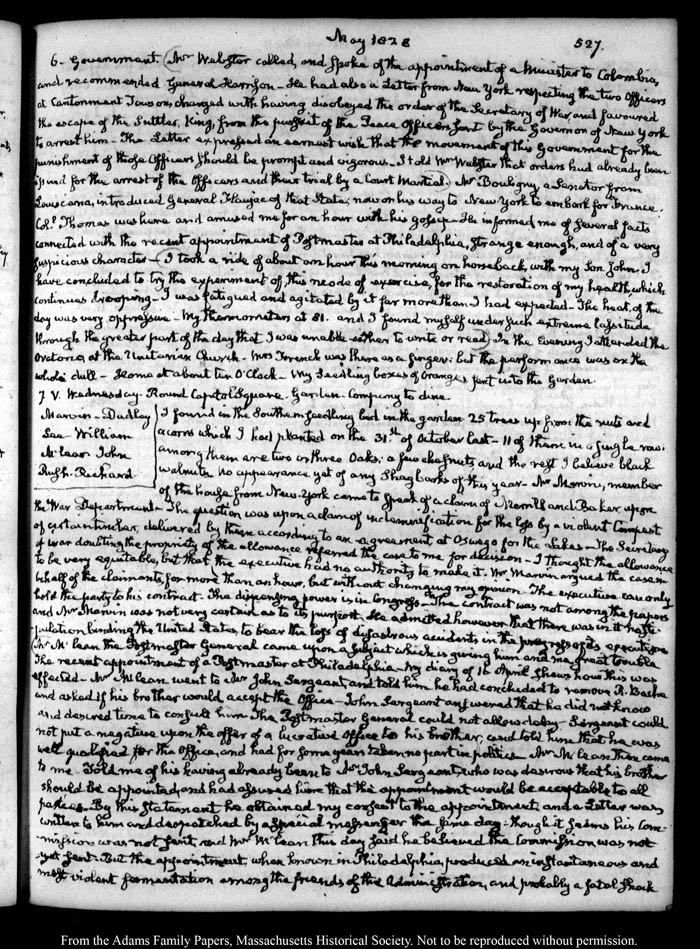 May 1828
527.
6. Government. Mr Webster called, and spoke of the appointment of a Minister to Colombia,
and recommended General Harrison. He had also a Letter from New York respecting the two Officers
at Cantonment Towson, charged with having disobeyed the order of the Secretary of War, and favoured
the escape of the Suttler, King, from the pursuit of the Peace Officers sent by the Governor of New York
to arrest him. The Letter expressed an earnest wish that the movement of this Government for the
punishment of those Officers should be prompt and vigorous. I told Mr Webster that orders had already been
issued for the arrest of the Officers and their trial by a Court Martial. Mr Bouligny a Senator from
Louisiana, introduced General of that State; now on his way to New York to embark for France.
Coll. Thomas was here and amused me for an hour with his gossip. He informed me of several facts
connected with the recent appointment of Postmaster at Philadelphia, strange enough, and of a very
suspicious character. I took a ride of about an hour this morning on horseback, with my Son John. I
have concluded to try the experiment of this mode of exercise, for the restoration of my health, which
continues drooping. I was fatigued and agitated by it far more than I had expected. The heat of the
day was very oppressive. My thermometer at 81. and I found myself under such extreme lassitude
through the greater part of the day that I was unable either to write or read. In the Evening I attended the
Oratorio, at the Unitarian Church. Mrs French was there as a singer: but the performance was on the
whole dull. Home at about ten O'Clock. My seedling boxes of Oranges sent into the Garden.
7. V. Wednesday. Round Capitol Square. Garden. Company to dine
Marvin. Dudley
Lee William
McLean John
Rush. Richard
I found in the Southern seedling bed in the garden 25 trees up from the nuts and
acorns which I had planted on the 31st of October last. 11 of them in a single row.
among them are two or three Oaks; a few chesnuts and the rest I believe black
walnuts. no appearance yet of any Shagbarks of this year. Mr Marvin, member
of the house from New-York came to speak of a claim of Morrill and Baker upon
the War Department. The question was upon a claim of indemnification for the loss by a violent tempest
of certain timber, delivered by them according to an agreement at Oswego for the Lakes. The Secretary
of war doubting the propriety of the allowance referred the case to me for decision. I thought the allowance
to be very equitable, but that the executive had no authority to make it. Mr Marvin argued the case in
behalf of the claimants for more than an hour, but without changing my opinion. The executive can only
hold the party to his contract. The dispensing power is in Congress. The contract was not among the papers
and Mr Marvin was not very certain as to its purport. He admitted however that there was in it no sti-
pulation binding the United States, to bear the loss of disastrous accidents in the progress of its execution
Mr McLean the Postmaster General came upon a subject which is giving him and me great trouble
The recent appointment of a Postmaster at Philadelphia. My diary of 16 April shews how this was
effected. Mr McLean went to Mr John Sergeant, and told him he had concluded to remove R. Bache
and asked if his brother would accept the Office. John Sergeant answered that he did not know
and desired time to consult him. The Postmaster General could not allow delay. Sergeant could
not put a negative upon the offer of a lucrative Office to his brother, and told him that he was
well qualified for the Office, and had for some years taken no part in politics. Mr McLean then came
to me. Told me of his having already been to Mr John Sergeant, who was desirous that his brother
should be appointed, and had assured him that the appointment would be acceptable to all
parties. By this statement he obtained my consent to the appointment, and a Letter was
written to him and despatched by a special messenger the same day: though it seems his com-
mission was not sent, and Mr McLean this day said he believed the Commission was not
yet sent. But the appointment, when known in Philadelphia, produced an instantaneous and
most violent fermentation among the friends of the Administration, and probably a fatal shock
From the Adams Family Papers, Massachusetts Historical Society. Not to be reproduced without permission.